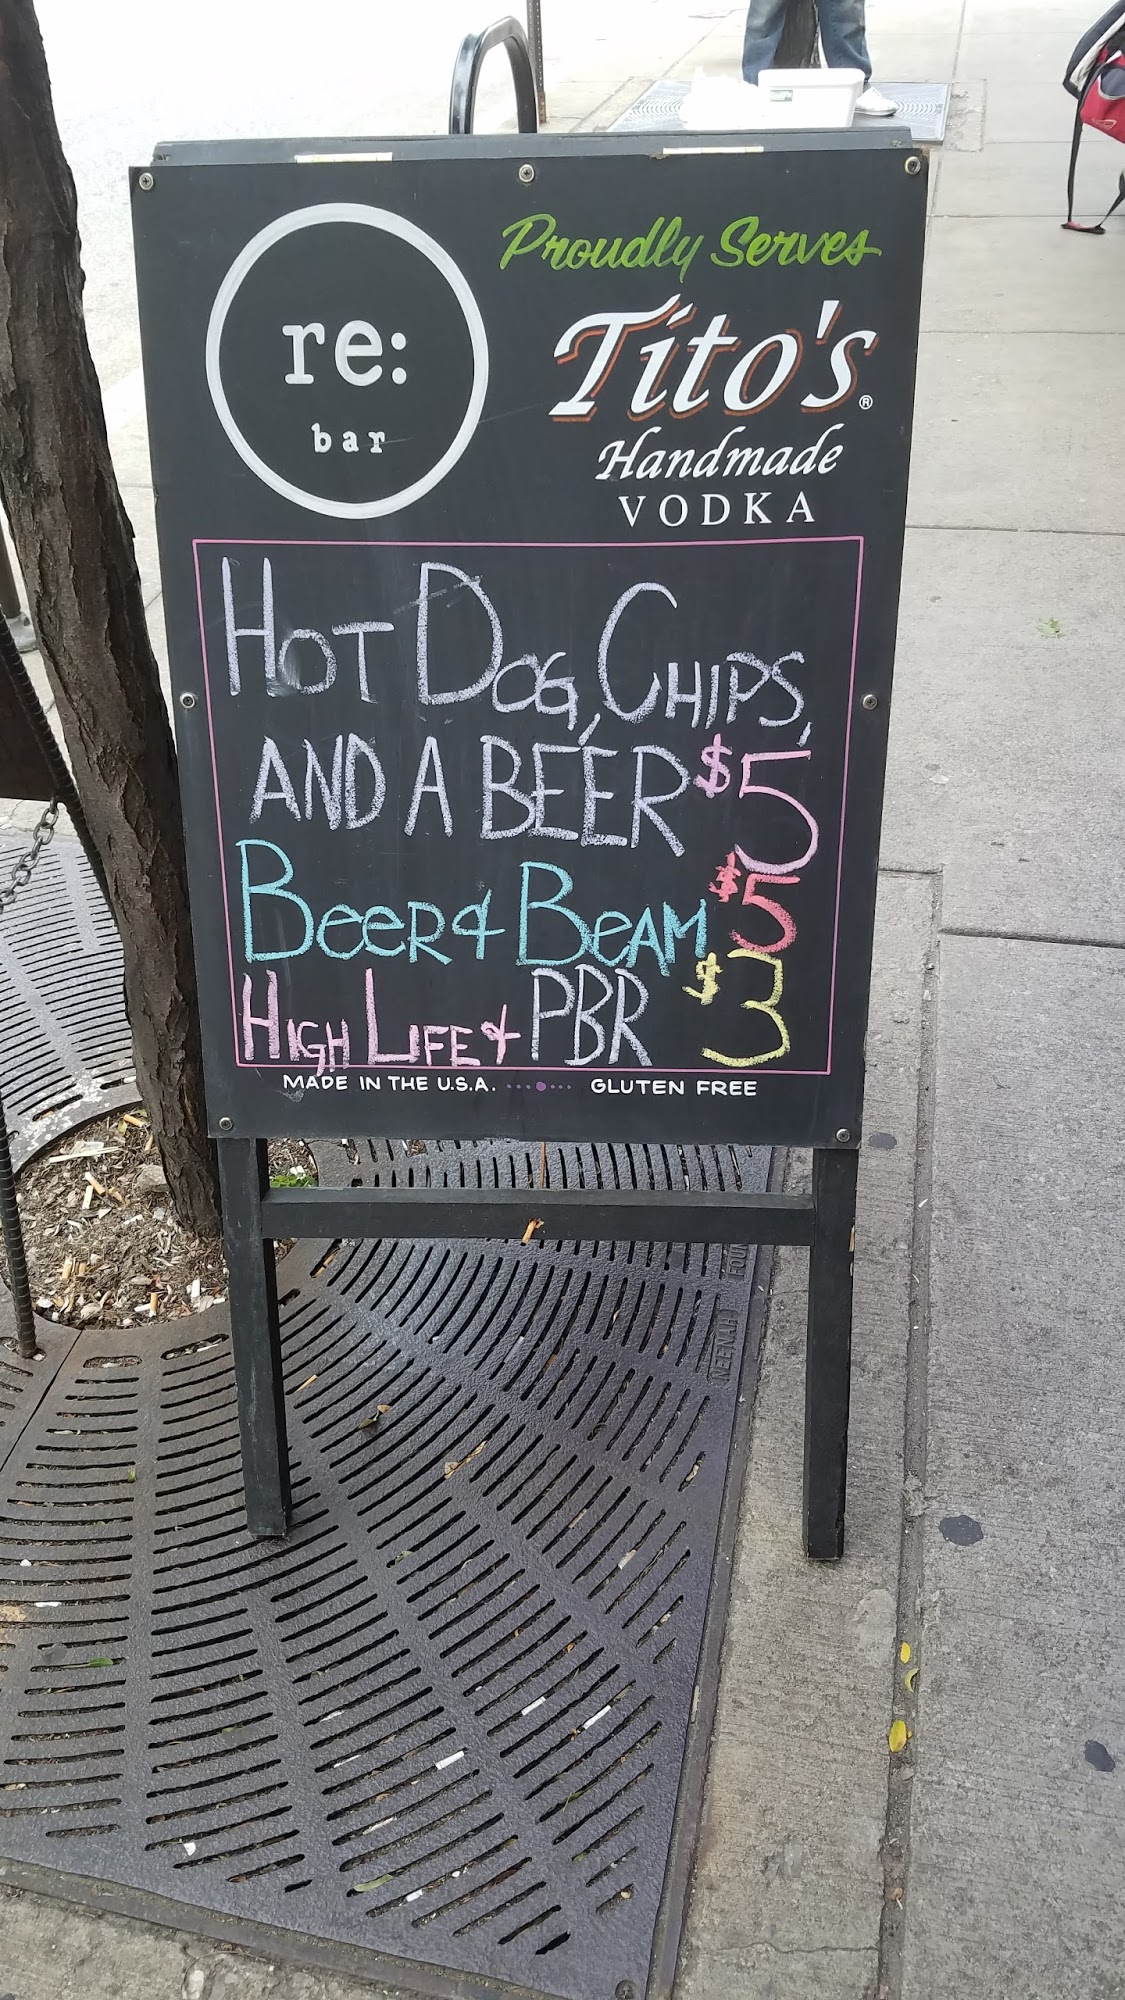 re:
bar
Proudly Serves
Tito's®
Handmade
VODKA
HOT DOG, CHIPS,
AND A BEER $5
BEER & BEAM $5
HIGH LIFE & PBR $3
MADE IN THE U.S.A. GLUTEN FREE
NEENAH